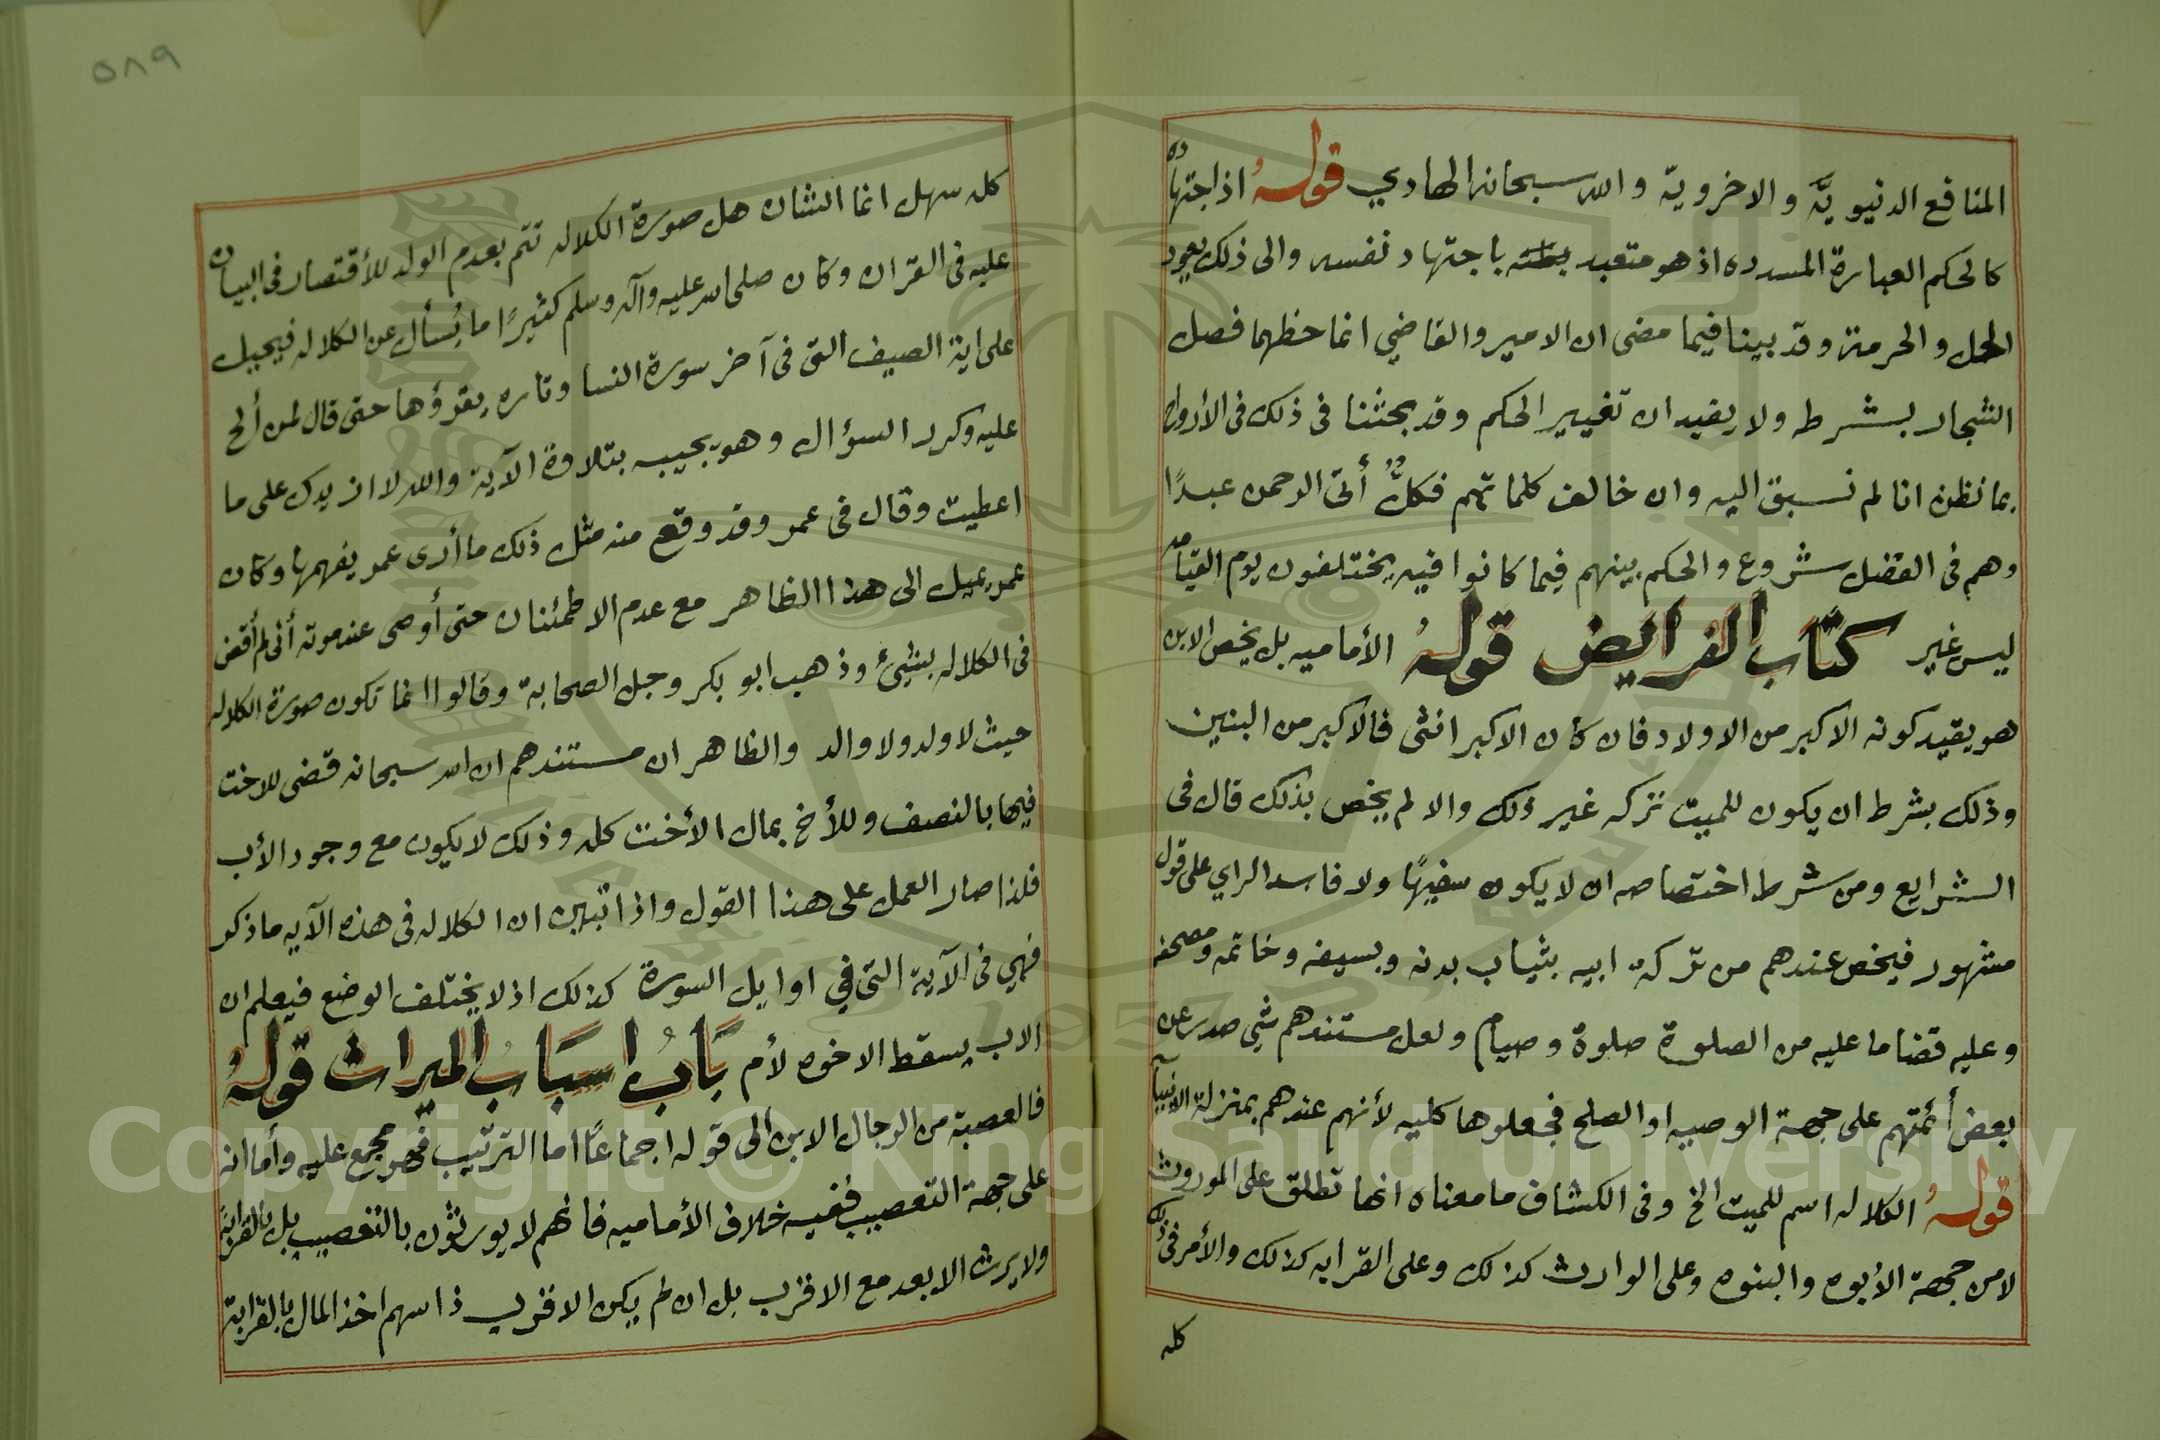 المنافع الدنيويّة والاخروية والله سبحانه الهادي قوله اذ اجتهاده
كالحكم العبارة المسدده اذ هو متعبد باجتهاد نفسه والى ذلك يعود
الحل والحرمة وقد بينا فيما مضى ان الامير والقاضي انما حظهما فصل
الشجار بشرط ولا يفيدان تغيير الحكم وقد بحثنا في ذلك في الأرواح
بما نظن انا لم نسبق اليه وان خالف كلماتهم فكلٌّ أتى الرحمن عبدًا
وهم في الفضل شروع والحكم بينهم فيما كانوا فيه يختلفون يوم القيامه
ليس غير كتاب الفرايض قوله الأماميه بل يخص الابن
هو بقيد كونه الاكبر من الاولاد فان كان الاكبر انثى فالاكبر من البنين
وذلك بشرط ان يكون للميت تركه غير ذلك والا لم يخص بذلك قال في
الشرايع ومن شرط اختصاصه ان لا يكون سفيهًا ولا فاسد الراي على قول
مشهور فيخص عندهم من تركة ابيه بثياب بدنه وبسيفه وخاتمه ومصحفه
وعليه قضا ما عليه من الصلوة صلوة وصيام ولعل مستندهم شي صدر عن
بعض أئمتهم على جهة الوصيه او الصلح فجعلوها كليه لأنهم عندهم بمنزلة الانبيآ
قوله الكلاله اسم للميت الخ وفي الكشاف ما معناه انها تطلق على الموروث
لا من جهة الأبوه والبنوه وعلى الوارث كذلك وعلى القرابه كذلك والأمر في ذلك
كله
٥٨٩
كله سهل انما الشان هل صورة الكلاله تتم بعدم الولد للأقتصار في البيان
عليه في القران وكان صلى الله عليه وآله وسلم كثيرًا ما يُسأل عن الكلاله فيحيل
على اية الصيف التي في آخر سورة النسا وتاره يقرؤها حتى قال لمن ألح
عليه وكرر السؤال وهو يجيبه بتلاوة الآية والله لا ازيدك على ما
اعطيت وقال في عمر وقد وقع منه مثل ذلك ما أرى عمر يفهمها وكان
عمر يميل الى هذا الظاهر مع عدم الاطمئنان حتى أوصى عند موته أني لم أقض
في الكلاله بشيئ وذهب ابو بكر وجل الصحابة وقالوا انما تكون صورة الكلاله
حيث لا ولد ولا والد والظاهر ان مستندهم ان الله سبحانه قضى للاخت
فيها بالنصف وللأخ بمال الأخت كله وذلك لا يكون مع وجود الأب
فلذا صار العمل على هذا القول واذا تبين ان الكلاله في هذه الآيه ما ذكر
فهي في الآية التي في اوايل السورة كذلك اذ لا يختلف الوضع فيعلم ان
الاب يسقط الاخوه لأم بَابُ اسبَابُ الميراث قوله
فالعصبة من الرجال الابن الى قوله اجماعًا اما الترتيب فهو مجمع عليه وأما انه
على جهة التعصيب ففيه خلاف الأماميه فانهم لا يورثون بالتعصيب بل بالقرابة
ولا يرث الابعد مع الاقرب بل ان لم يكن الاقرب ذا سهم اخذ المال بالقرابة
Copyright © King Saud University
1957